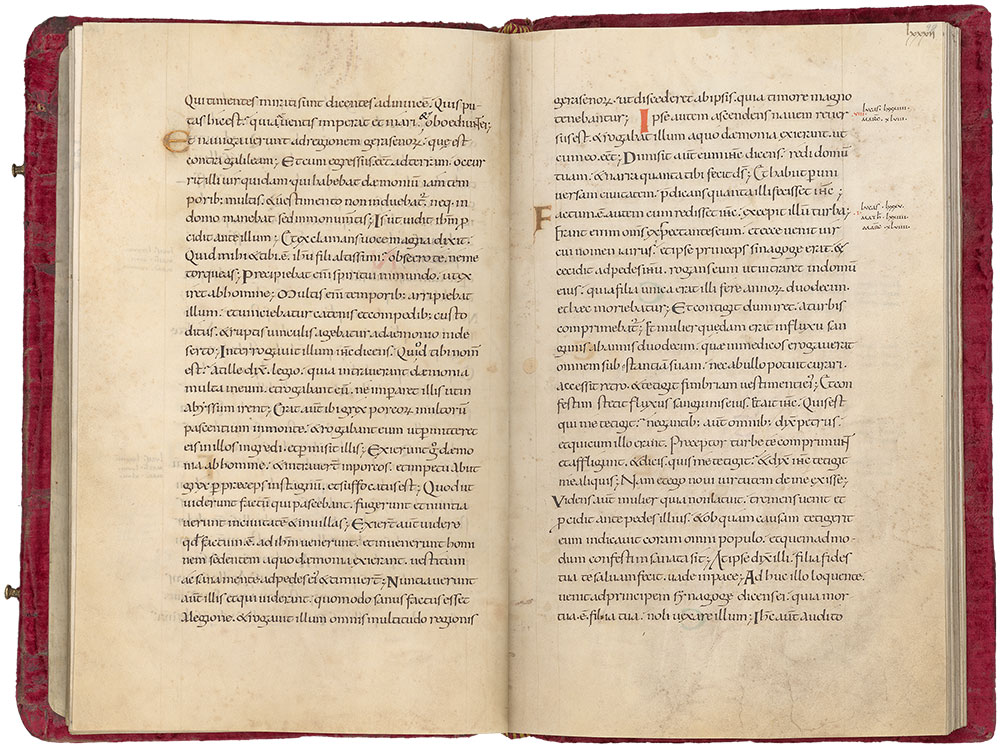 Qui timentes mirati sunt dicentes ad invicē. Quis pu
tas hic est. quia & ventis imperat et mari. & oboediunt ei;
Et navigaverunt ad regionem gerasenoꝝ. que est
contra galileam; Et cum egressus ēēt ad terram. occur
rit illi vir quidam. qui habebat dæmoniū iam tem
porib; multis. & vestimento non induebat. neq; in
domo manebat sed in monumentis; Is ut vidit ihm̄ p
cidit ante illum; Et exclamans voce magna dixit.
Quid mihi & tibi ē. ihu fili altissimi. obsecro te. ne me
torqueas; Precipiebat em̄ spiritui inmundo. ut ex
iret ab homine; Multis em̄ temporib; arripiebat
illum. et vinciebatur catenis et compedib; custo
ditus. & ruptis vinculis. agebatur a dæmonio in de
serto; Interrogavit illum ihc̄ dicens. Quod tibi nom̄
est. At ille dix̄. legio. quia intraverant dæmonia
multa in eum. et rogabant eū. ne imparet illis ut in
abyssum irent; Erat aut̄ ibi grex porcoꝝ multorū
pascentium in monte. & rogabant eum ut pmitteret
eis in illos ingredi. et pmisit illis; Exierunt g̊ dæmo
nia ab homine. & intraver̄t in porcos. et impetu abiit
grex p preceps in stagnū. et suffocatus est; Quod ut
viderunt factū qui pascebant. fugerunt et nuntia
verunt in civitatē & in villas; Exier̄t aut̄ videre
qd̄ factum ē. ad ihm̄ venerunt. et invenerunt homi
nem sedentem a quo dæmonia exierant. vestitum
ac sana mente. ad pedes ei & timuer̄t; Nuntiaverunt
aut̄ illis et qui viderunt. quomodo sanus factus esset
a legione. & rogavit illum omnis multitudo regionis
lxxxii
gerasenoꝝ. ut discederet ab ipsis. quia timore magno
tenebantur; Ipse autem ascendens navem rever
sus est. & rogabat illum a quo dæmonia exierant. ut
cum eo ēēt; Dimisit aut̄ eum ihc̄ dicens. redi domū
tuam. & narra quanta tibi fecit ds̄; Et habiit p uni
versam civitatem. pdicans quanta illi fecisset ihc̄;
Factum ē autem cum redisset ihc̄. excepit illū turba;
Erant enim oms̄ expectantes eum. et ecce venit vir
cui nomen iairus. et ipse princeps sinagoge erat. &
cecidit ad pedes ihu. rogans eum ut intraret in domū
eius. quia filia unica erat illi fere annoꝝ duodecim.
et hæc moriebatur; Et contigit dum iret. a turbis
comprimebat̄; Et mulier quedam erat in fluxu san
guinis ab annis duodecim. quæ in medicos erogaverat
omnem substantiā suam. nec ab ullo potuit curari.
accessit retro. & tetigit fimbriam vestimenti ei; Et con
festim stetit fluxus sanguinis eius. Et ait ihc̄. Quis est
qui me tetigit. negantib; aut̄ omnib; dix̄ petrus.
et qui cum illo erant. Preceptor turbe te comprimunt
et affligunt. & dicis. quis me tetigit. & dix̄ ihc̄ tetigit
me aliquis; Nam et ego novi virtutem de me exisse;
Videns aut̄ mulier quia non latuit. tremens venit et
pcidit ante pedes illius. & ob quam causam tetigerit
eum indicavit coram omni populo. et quemadmo
dum confestim sanata sit; At ipse dix̄ illi. filia fides
tua te salvam fecit. vade in pace; Adhuc illo loquente.
venit ad principem synagoge dicens ei. quia mor
tua ē. filia tua. noli vexare illum; Ihc̄ aut̄ audito
lucas. lxxxiiii.
lucas. lxxxv.